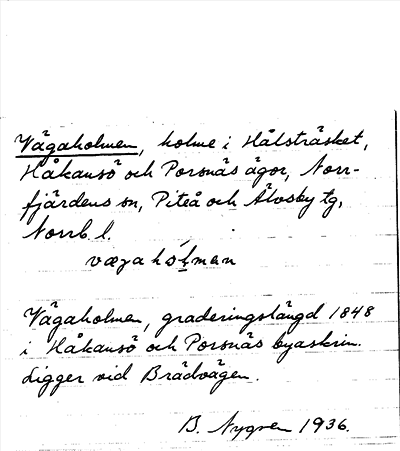 Vägaholmen, holme i Hålsträsket,
Håkansö och Porsnäs ägor, Norr-
fjärdens sn, Piteå och Älvsby tg,
Norrb. l.
vægahólman
Vägaholmen, graderingslängd 1848
i Håkansö och Porsnäs byaskrin.
Ligger vid Brädvägen.
B. Nygren 1936.